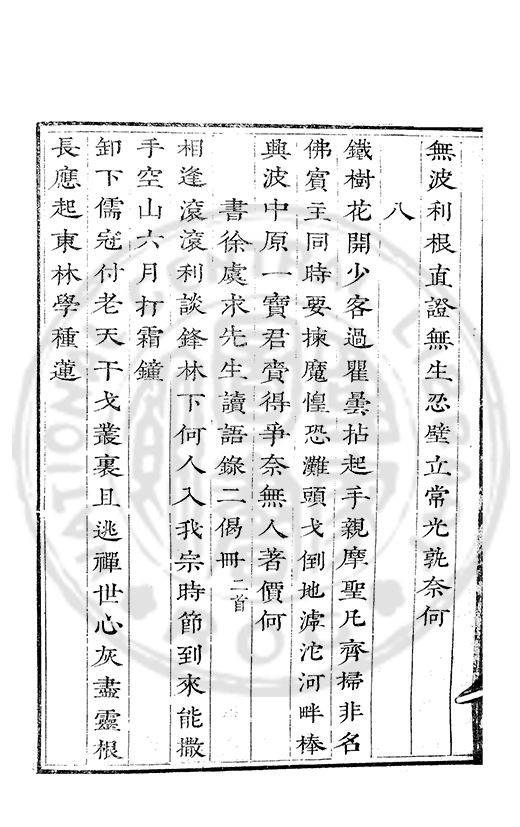 無波利根直證無生忍壁立常光孰奈何
八
鐵樹花開少客過瞿曇拈起手親摩聖凡齊掃非名
佛賓主同時要揀魔惶恐灘頭戈倒地滹沱河畔棒
興波中原一寶君賣得爭奈無人著價何
書徐處求先生讀語錄二偈冊二首
相逢滾滾利談鋒林下何人入我宗時節到來能撒
手空山六月打霜鐘
卸下儒冠付老天干戈叢裏且逃禪世心灰盡靈根
長應起東林學種蓮